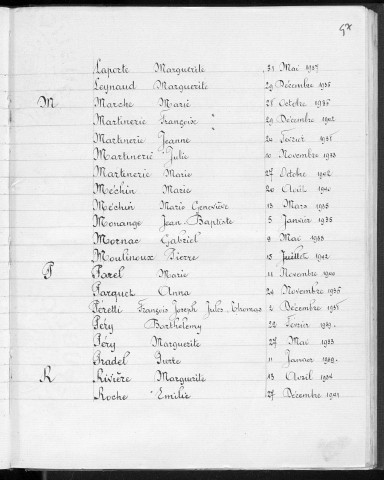 57
Laporte Marguerite 31 Mai 1937
Leynaud Marguerite 29 Décembre 1936
M Marche Marie 21 Octobre 1936
Martinerie Françoise 29 Décembre 1942
Martinerie Jeanne 20 Fevrier
Martinerie Julie 10 Novembre 1933
Martinerie Marie 27 Octobre 1942
Méchin Marie 20 Août 1940
Méchin Marie Geneviève 13 Mars 1938
Monange Jean-Baptiste 5 Janvier 1935
Mornac Gabriel 9 Mai 1933
Moulinoux Pierre 15 Juillet 1942
P Parel Marie 11 Novembre 1940
Parquet Anna 24 Novembre 1936
Peretti François Joseph Jules Thomas 2 Décembre
Péry Barthelemy 22 Février 1939
Péry Marguerite 27 Mai 1933
Pradel 11 Janvier 1939
R Rivière Marguerite 13 Avril 1934
Roche Emilie 27 Décembre 1941